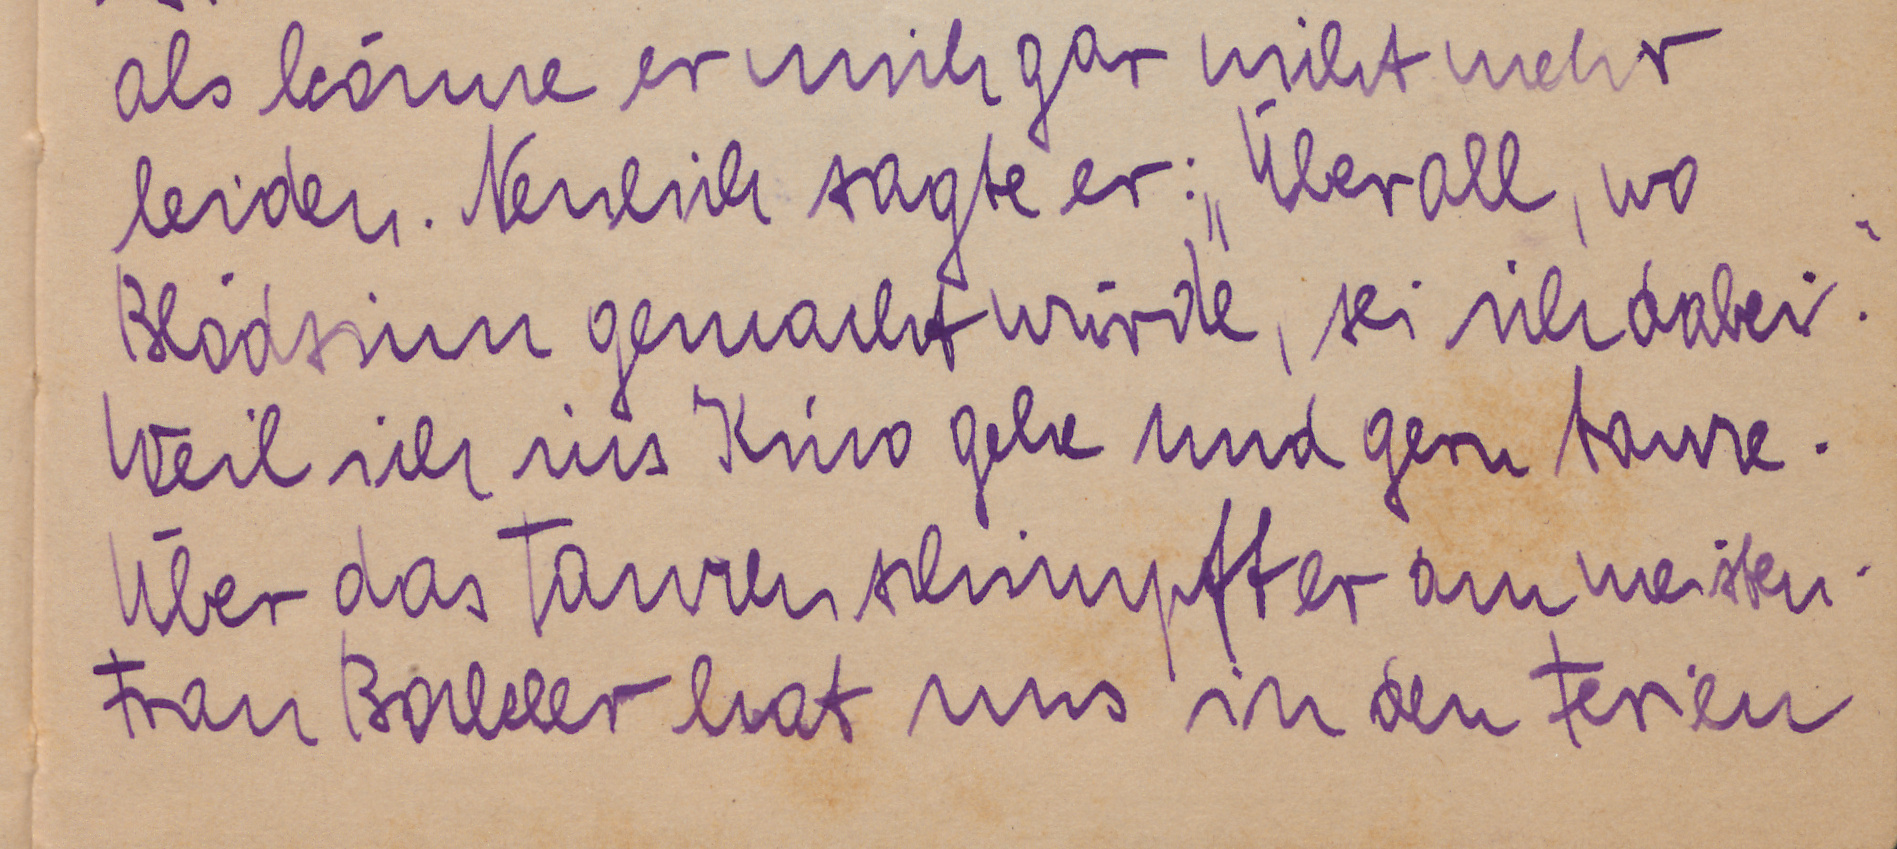 als könne er mich gar nicht mehr
leiden. Neulich sagte er: „Überall, wo
Blödsinn gemacht würde, sei ich dabei."
Weil ich ins Kino gehe und gern tanze.
Über das Tanzen schimpft er am meisten.
Frau hat uns in den Ferien